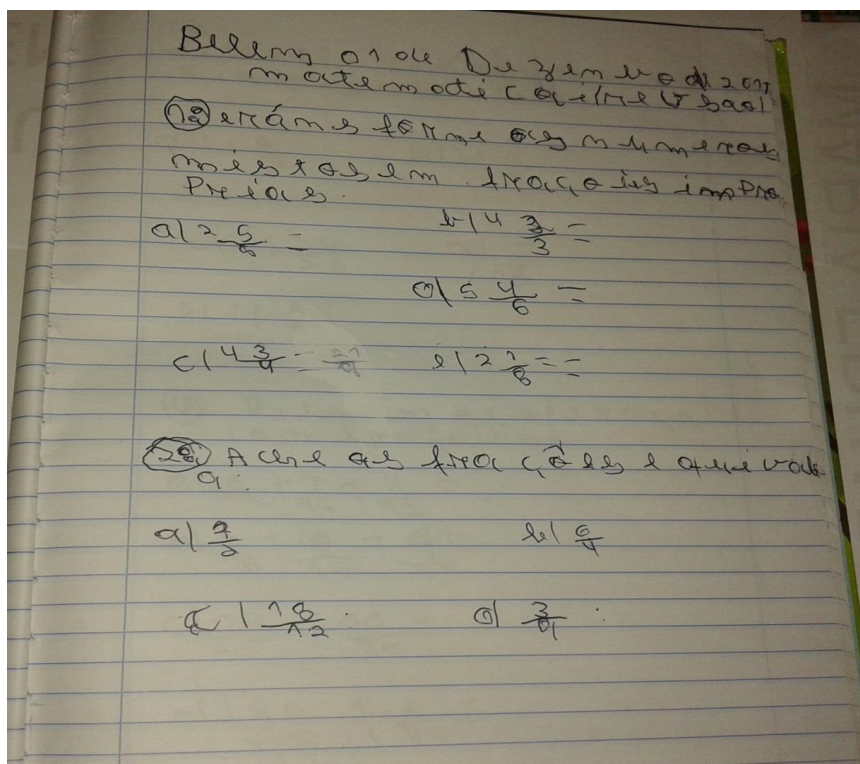 Belem 01 de Dezembro de 201
matematica
1ª) transforme os numeros
mistos em frações impro
prias.
a) 2 5/8 = b) 4 2/3 =
d) 5 4/6 =
c) 4 3/4 = e) 2 1/8 = =
2ª) Ache as frações equivale
a:
a) b) 6/4
c) 18/12 d) 3/9